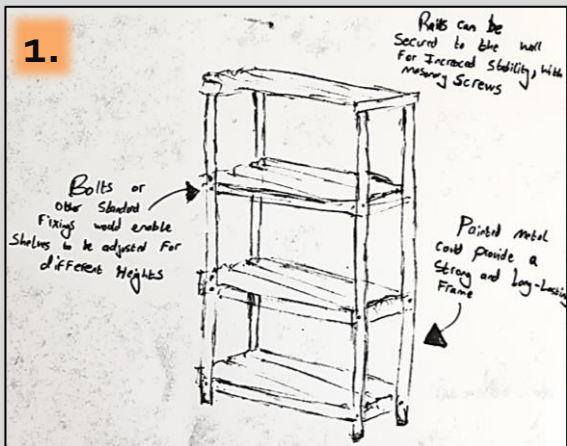 1.
Rails can be
Secured to the wall
For Increased Stability, with
masonry Screws
Bolts or
Other Standard
Fixings would enable
Shelves to be adjusted For
different Heights
Painted metal
could provide a
Strong and Long-Lasting
Frame